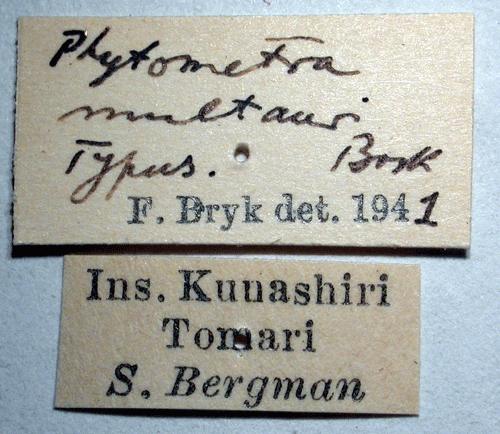 Phytometra
multauri.
Typus. Bryk
F. Bryk det. 1941
Ins. Kunashiri
Tomari
S. Bergman